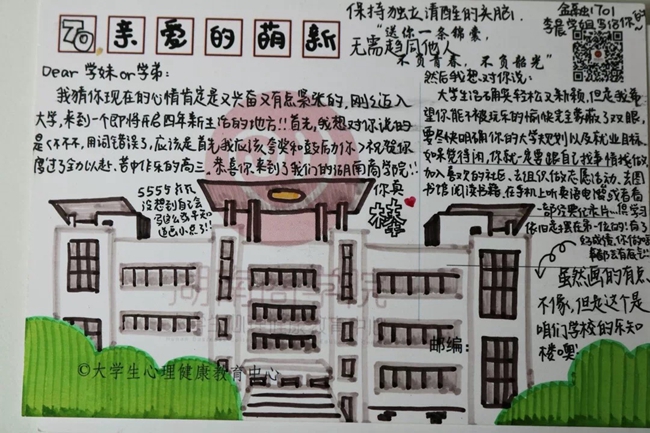 To.亲爱的萌新
Dear 学妹or学弟:
我猜你现在的心情肯定是又兴奋又有点紧张的,刚刚迈入
大学,来到一个即将开启四年新生活的地方!!首先,我想对你说的
是(不不,用词错误了,应该是首先我应该夸奖和鼓励你)祝贺你
度过了全力以赴、苦中作乐的高三。恭喜你来到了我们的湖南商学院!!
你真
棒
555我
没想到自己会
保持独立清醒的头脑,
无需趋同他人
"送你一条锦囊,
不负青春,不负韶光"
金融1701
李晨学姐写给你的~
然后我想对你说:
大学生活确实轻松又新颖,但是我希
望你能不被玩乐的愉快完全蒙蔽了双眼,
要尽快明确你的大学规划以及就业目标,
如果觉得闲,你就一定要跟自己找事情找做,
加入喜欢的社区、去组织做志愿活动、去图
书馆阅读书籍、在手机上听英语电台或者看
一部分奥记录片…但学习
依旧是要摆在第一位的!有了
好成绩,你做啥
事都会有底气!!
虽然画的有点
不像,但是这个是
咱们学校的乐知
楼噢!
湖南商学院
邮编:
©大学生心理健康教育中心